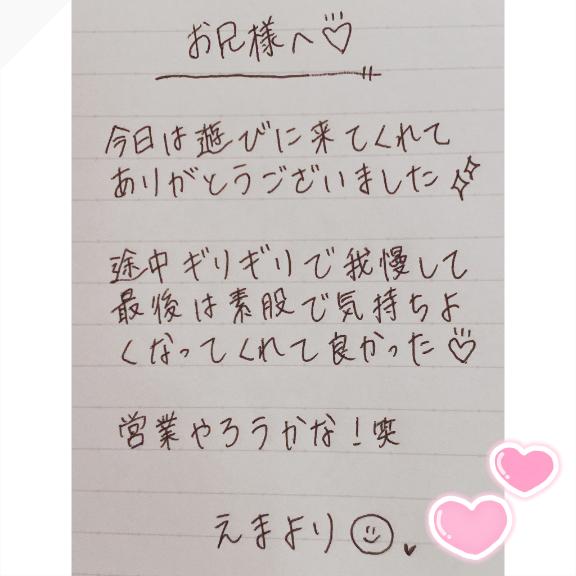 お兄様へ♡
今日は遊びに来てくれて
ありがとうございました
途中ギリギリで我慢して
最後は素股で気持ちよ
くなってくれて良かった♡
営業やろうかな！笑
えまより